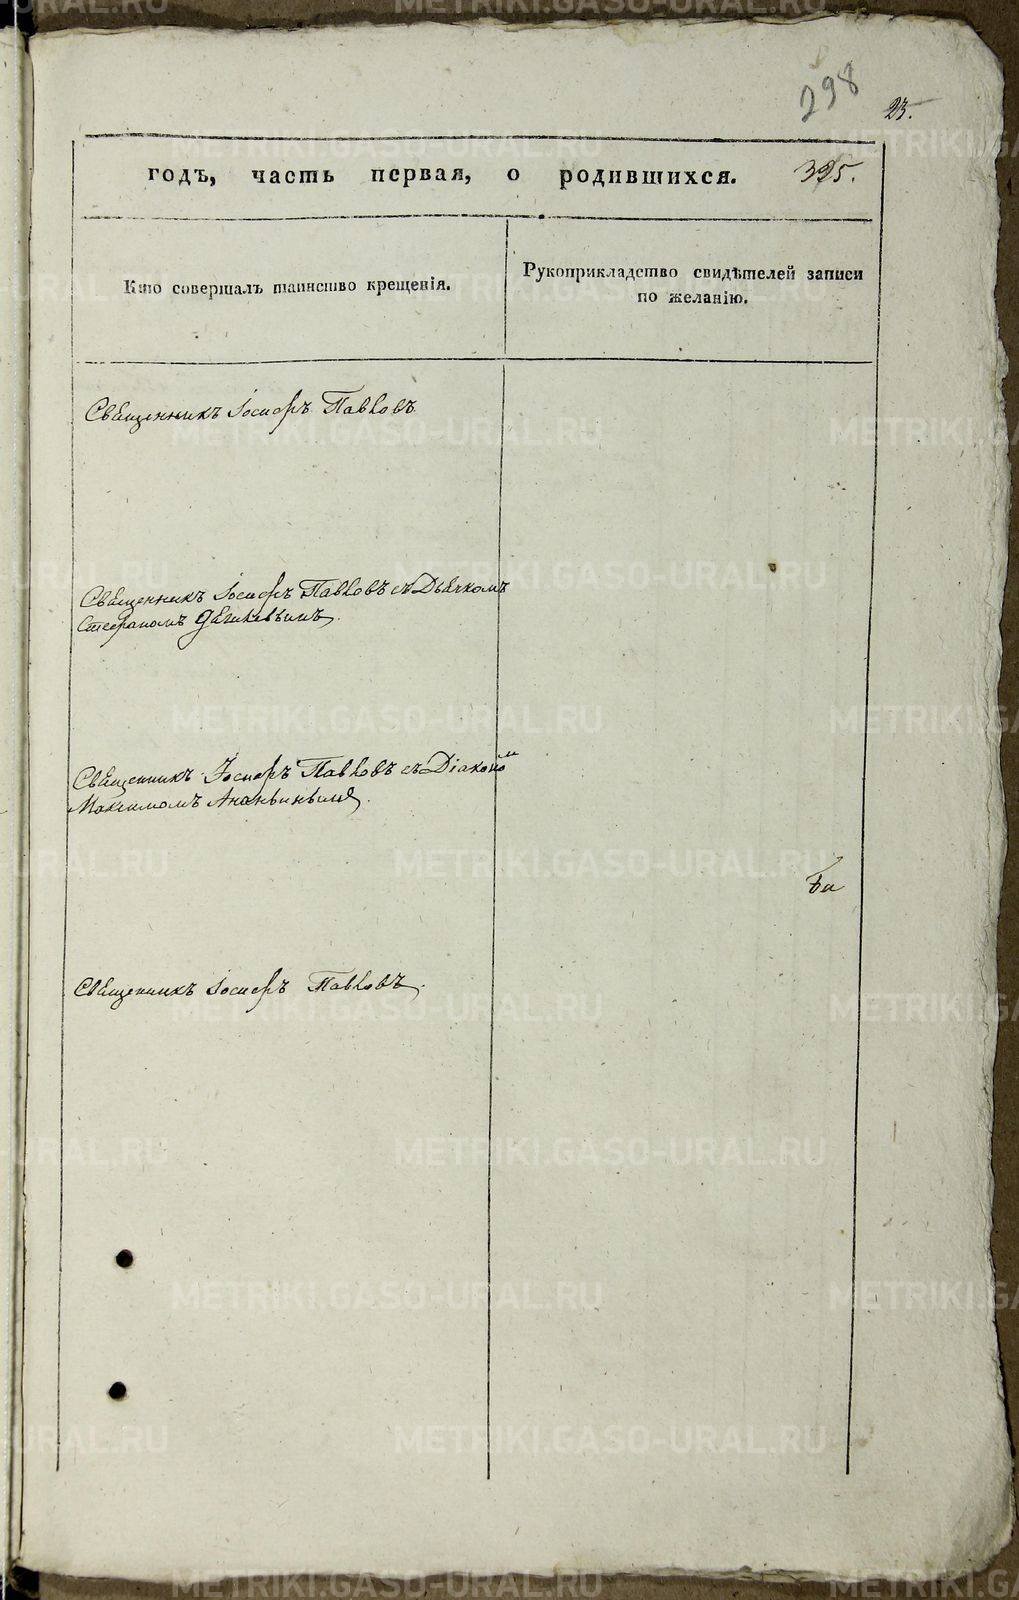 298
23.
годъ, часть первая, о родившихся. 325.
Кто совершалъ таинство крещенія.
Рукоприкладство свидѣтелей записи
по желанію.
Священникъ Іосифъ Павловъ
Священникъ Іосифъ Павловъ съ Дьячкомъ
Стефаномъ
Священникъ Іосифъ Павловъ съ Діакономъ
Максимомъ Ананьинымъ.
Священникъ Іосифъ Павловъ.
METRIKI.GASO-URAL.RU